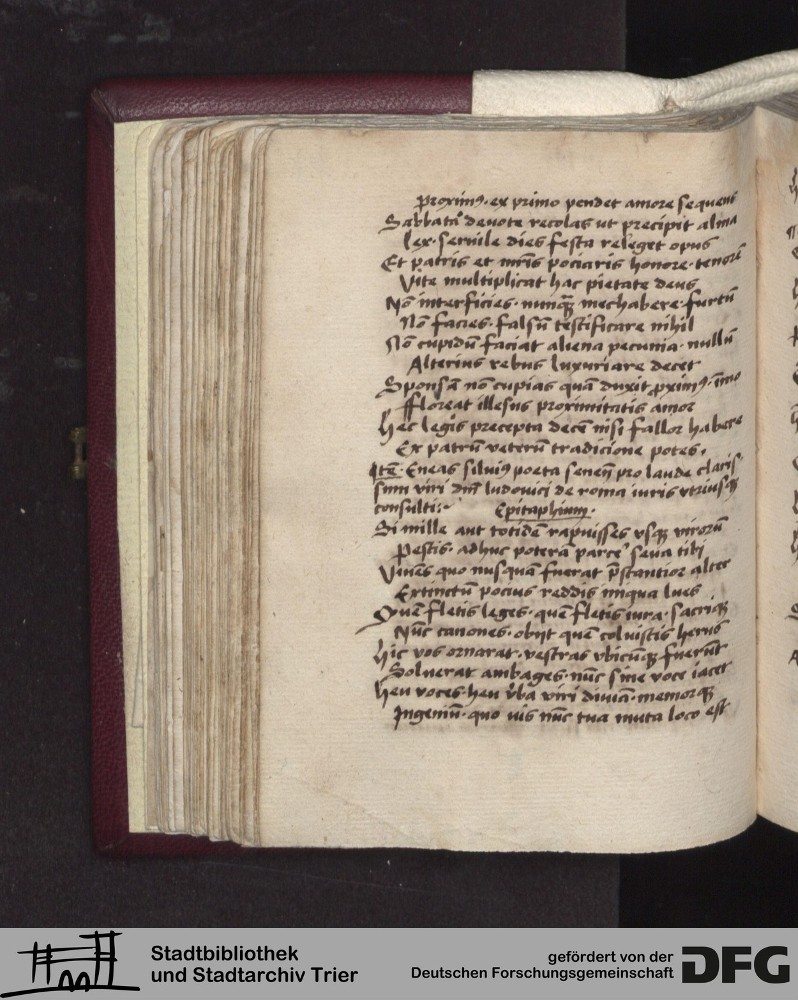 Proximꝰ· ex primo pendet amore sequens
Sabbata deuote recolas ut precipit alma
lex· seruile dies festa releget opus
Et patris et mr̄is pociaris honore· tenorē
Vite multiplicat hac pietate deus
Nō interficies· nunq̄ mechabere· furtū
Nō facies· falsū testificare nihil
Nō cupidū faciat aliena pecunia· nullū
Alterius rebus luxuriare decet
Sponsā nō cupias quā duxit ꝓximꝰ· īmo
ffloreat illesus proximitatis amor
Hec legis precepta decē nisi fallor habere
Ex patrū veterū tradicione potes.
Itē· Eneas siluiꝰ poeta senēn̄ pro laude claris
simi viri dn̄i ludouici de roma iuris vtriusqꝫ
consulti:~ Epitaphium.
Si mille aut totidē rapuisses vsqꝫ virorū
Pestis· adhuc poterā parcē seua tibi
Viuēs quo nusquā fuerat p̄stantior alter
Extinctū pocius reddis iniqua lues
Quē fletis leges· quē fletis iura· sacriqꝫ
Nūc canones· obijt quē coluistis herus
Hic vos ornarat· vestras vbicūqꝫ fuerūt
Soluerat ambages· nūc sine voce iacet
Heu voces· heu v̄ba viri diuiā· memorqꝫ
Ingeniū· quo uis nūc tua muta loco est
Stadtbibliothek
und Stadtarchiv Trier
gefördert von der
Deutschen Forschungsgemeinschaft
DFG